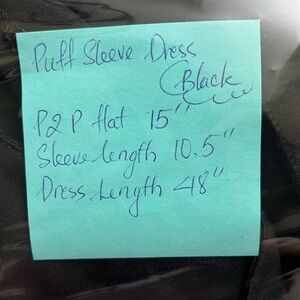 Puff Sleeve Dress
Black
P2P flat 15"
Sleeve length 10.5"
Dress Length 48"